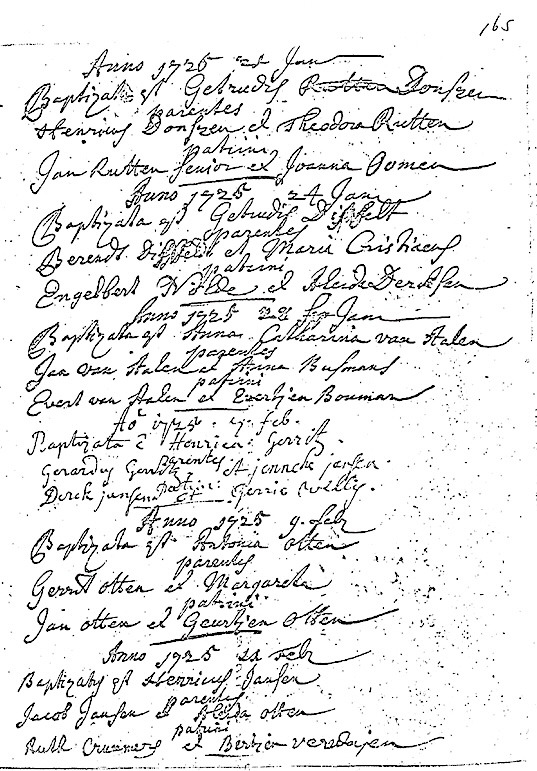 165
Anno 1725 21 Jan
Baptizata est Getrudis Rutten Donszen
parentes
Henricus Donszen et Theodora Rutten
patrini
Jan Rutten senior et Joanna Oomen
Anno 1725 24 Jan
Baptizata est Getrudis Disfelt
parentes
Berendt Disfeldt et Maria Cristiaens
patrini
Engelbert Wilde et Aleida Dercksen
Anno 1725 Jan
Baptizata est Anna Catharina van Aalen
parentes
Jan van Aalen et Anna Busmans
patrini
Evert van Aalen et Evertjen Bouman
Ao 1725 . feb.
Baptizata e Henrica Gerritz.
parentes
Gerardus Gerritz et jenneke jansen
patrini
Derck jansen et Gerrie willis.
Anno 1725 9. feb
Baptizata est Antonia Otten
parentes
Gerrit Otten et Margareta
patrini
Jan Otten et Geurtjen Otten
Anno 1725 21 feb
Baptizatus est Henricus Jansen
parentes
Jacob Jansen et Aleida Otten
patrini
Ruth et Bertjen